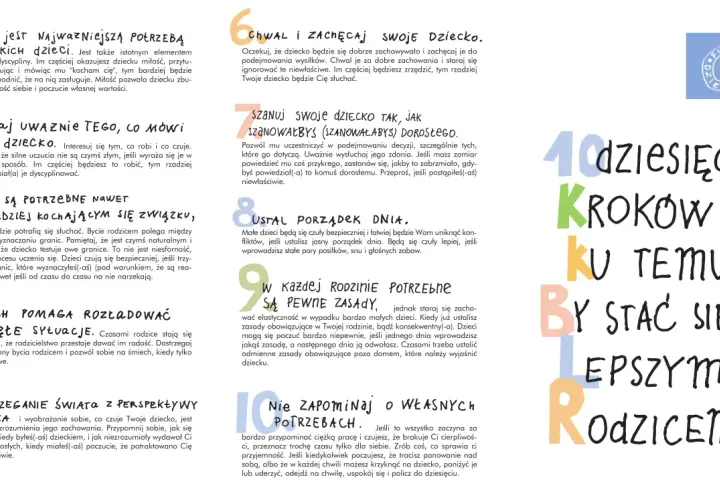 JEST NAJWAŻNIEJSZĄ POTRZEBĄ
KICH dzieci. Jest także istotnym elementem
dyscypliny. Im częściej okazujesz dziecku miłość, przytu-
ując i mówiąc mu "kocham cię", tym bardziej będzie
odnić, że na nią zasługuje. Miłość pozwala dziecku zbu-
ość siebie i poczucie własnej wartości.
aj UWAŻNIE TEGO, CO MÓWI
DZIECKO. Interesuj się tym, co robi i co czuje.
że silne uczucia nie są czymś złym, jeśli wyraża się je w
sposób. Im częściej będziesz to robić, tym rzadziej
siał(a) je dyscyplinować.
SĄ POTRZEBNE NAWET
dziej kochającym się związku,
dzie potrafią się słuchać. Bycie rodzicem polega między
yznaczaniu granic. Pamiętaj, że jest czymś naturalnym i
że dziecko testuje owe granice. To nie jest niesforność,
cesu uczenia się. Dzieci czują się bezpieczniej, jeśli trzy-
anic, które wyznaczyłeś(-aś) (pod warunkiem, że są rea-
wet jeśli od czasu do czasu na nie narzekają.
CH POMAGA ROZŁADOWAĆ
SYTUACJE. Czasami rodzice stają się
, że rodzicielstwo przestaje dawać im radość. Dostrzegaj
ony bycia rodzicem i pozwól sobie na śmiech, kiedy tylko
we.
ZEGANIE ŚWIATA Z PERSPEKTYWY
KA i wyobrażanie sobie, co czuje Twoje dziecko, jest
zrozumienia jego zachowania. Przypomnij sobie, jak się
iedy byłeś(-aś) dzieckiem, i jak niezrozumiały wydawał Ci
osłych, kiedy miałeś(-aś) poczucie, że potraktowano Cię
iwie.
6. CHWAL I ZACHĘCAJ SWOJE DZIECKO.
Oczekuj, że dziecko będzie się dobrze zachowywało i zachęcaj je do
podejmowania wysiłków. Chwal je za dobre zachowania i staraj się
ignorować te niewłaściwe. Im częściej będziesz zrzędzić, tym rzadziej
Twoje dziecko będzie Cię słuchać.
7. SZANUJ SWOJE DZIECKO TAK, JAK
SZANOWAŁBYŚ (SZANOWAŁABYŚ) DOROSŁEGO.
Pozwól mu uczestniczyć w podejmowaniu decyzji, szczególnie tych,
które go dotyczą. Uważnie wysłuchaj jego zdania. Jeśli masz zamiar
powiedzieć mu coś przykrego, zastanów się, jakby to zabrzmiało, gdy-
byś powiedział(-a) to komuś dorosłemu. Przeproś, jeśli postąpiłeś(-aś)
niewłaściwie.
8. USTAL PORZĄDEK DNIA.
Małe dzieci będą się czuły bezpieczniej i łatwiej będzie Wam uniknąć kon-
fliktów, jeśli ustalisz jasny porządek dnia. Będą się czuły lepiej, jeśli
wprowadzisz stałe pory posiłków, snu i głośnych zabaw.
9. W KAŻDEJ RODZINIE POTRZEBNE
SĄ PEWNE ZASADY, jednak staraj się zacho-
wać elastyczność w wypadku bardzo małych dzieci. Kiedy już ustalisz
zasady obowiązujące w Twojej rodzinie, bądź konsekwentny(-a). Dzieci
mogą się poczuć bardzo niepewnie, jeśli jednego dnia wprowadzisz
jakąś zasadę, a następnego dnia ją odwołasz. Czasami trzeba ustalić
odmienne zasady obowiązujące poza domem, które należy wyjaśnić
dziecku.
10. Nie ZAPOMINAJ O WŁASNYCH
POTRZEBACH. Jeśli to wszystko zaczyna za
bardzo przypominać ciężką pracę i czujesz, że brakuje Ci cierpliwoś-
ci, przeznacz trochę czasu tylko dla siebie. Zrób coś, co sprawia ci
przyjemność. Jeśli kiedykolwiek poczujesz, że tracisz panowanie nad
sobą, albo że w każdej chwili możesz krzyknąć na dziecko, poniżyć je
lub uderzyć, odejdź na chwilę, uspokój się i policz do dziesięciu.
10 dziesięć
KROKÓW
KU TEMU
BY STAĆ SIĘ
LEPSZYM
RODZICEM